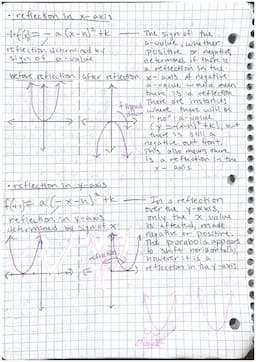 • reflection in x-axis
-f(x) = -a(x-h)²+k
reflection determined by
sign of a-value
before reflection after reflection
The sign of the
a-value, whether
positive or negative
determines if there is
a reflection in the
x-axis. A negative
a-value would mean
there is a reflection.
There are instances
where there will be
"no" a-value.
(y = -(x-h)²+k), but
there is still a
negative out front.
This also means there
is a reflection in the
x-axis.
flipped
down
• reflection in y-axis
f(-x) = a(-x-h)²+k
reflection in y-axis
determined by sign of x
In a reflection
over the y-axis,
only the x value
is affected, made
negative or positive.
The parabola appears
to shift horizontally,
however it is a
reflection in the y-axis
reflection